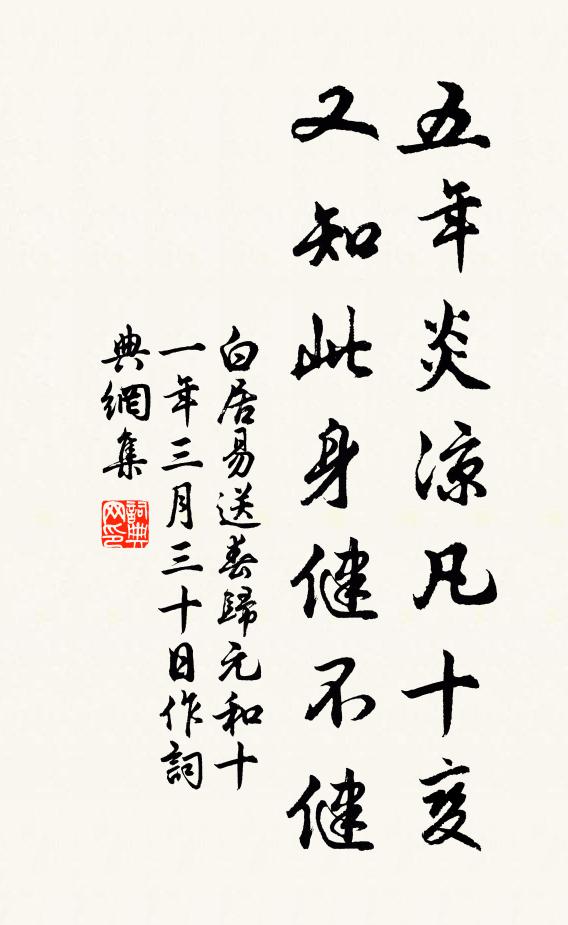 五年炎涼凡十变
又知此身健不健
白居易送春歸元和十
一年三月三十日作詞
典網集
詞典
网印